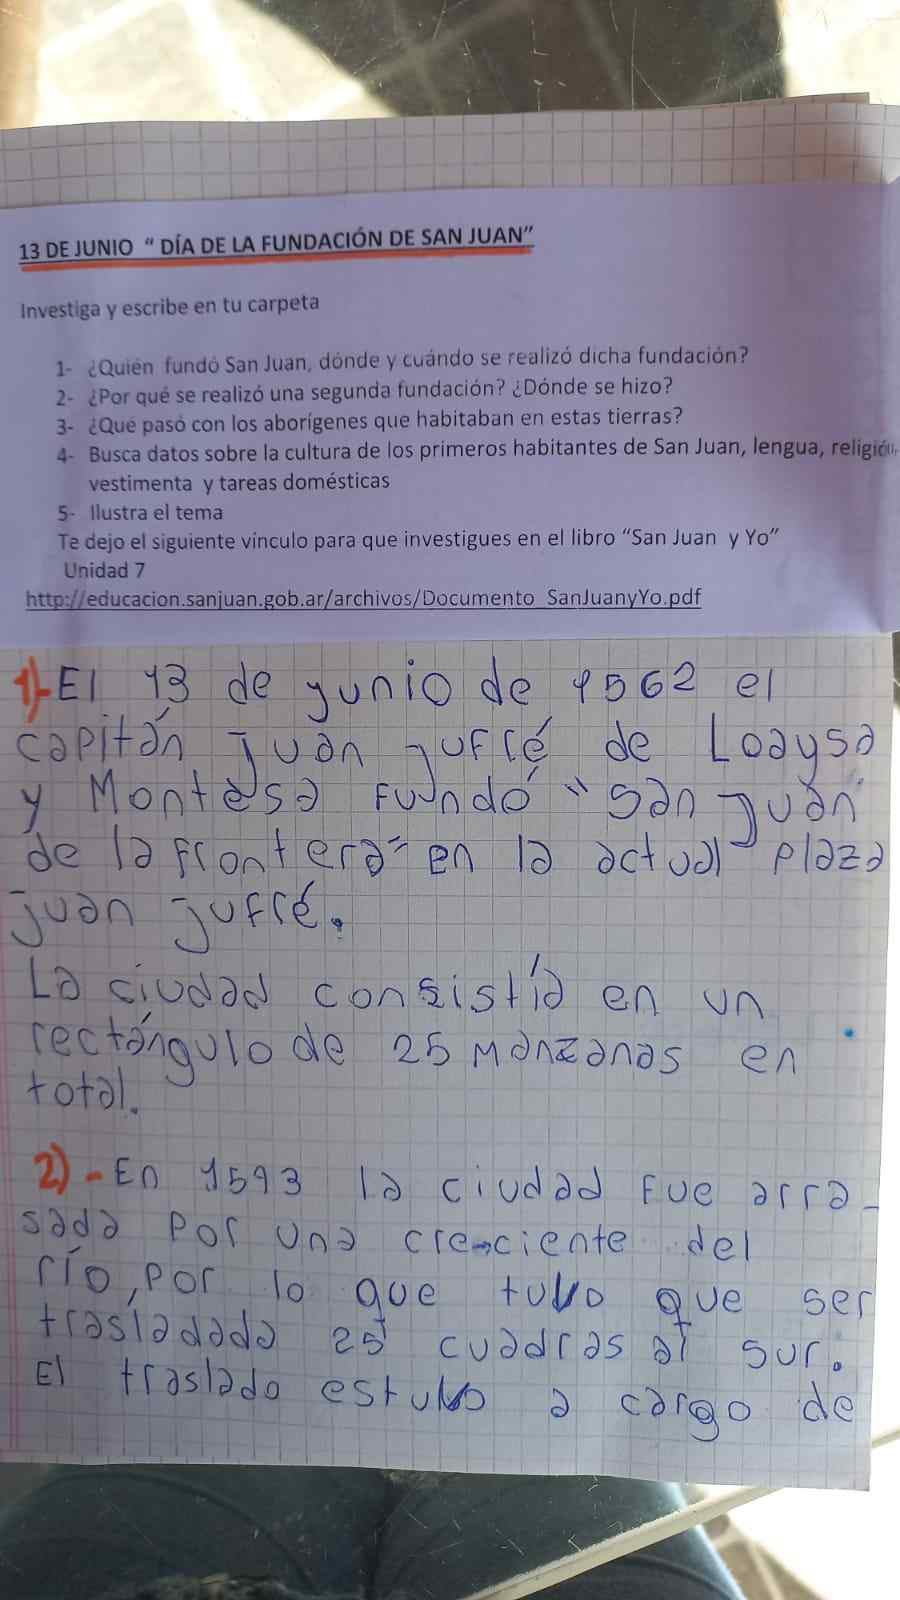 13 DE JUNIO “ DÍA DE LA FUNDACIÓN DE SAN JUAN”
Investiga y escribe en tu carpeta
1- ¿Quién fundó San Juan, dónde y cuándo se realizó dicha fundación?
2- ¿Por qué se realizó una segunda fundación? ¿Dónde se hizo?
3- ¿Qué pasó con los aborígenes que habitaban en estas tierras?
4- Busca datos sobre la cultura de los primeros habitantes de San Juan, lengua, religión,
vestimenta y tareas domésticas
5- Ilustra el tema
Te dejo el siguiente vínculo para que investigues en el libro “San Juan y Yo”
Unidad 7
http://educacion.sanjuan.gob.ar/archivos/Documento_SanJuanyYo.pdf
1)-El 13 de junio de 1562 el
capitán Juan jufré de Loaysa
y Montesa fundó "San Juan
de la frontera" en la actual plaza
juan jufré.
La ciudad consistía en un
rectángulo de 25 manzanas en
total.
2)-En 1593 la ciudad fue arra_
sada por una creciente del
río, por lo que tuvo que ser
trasladada 25 cuadras al sur.
El traslado estuvo a cargo de